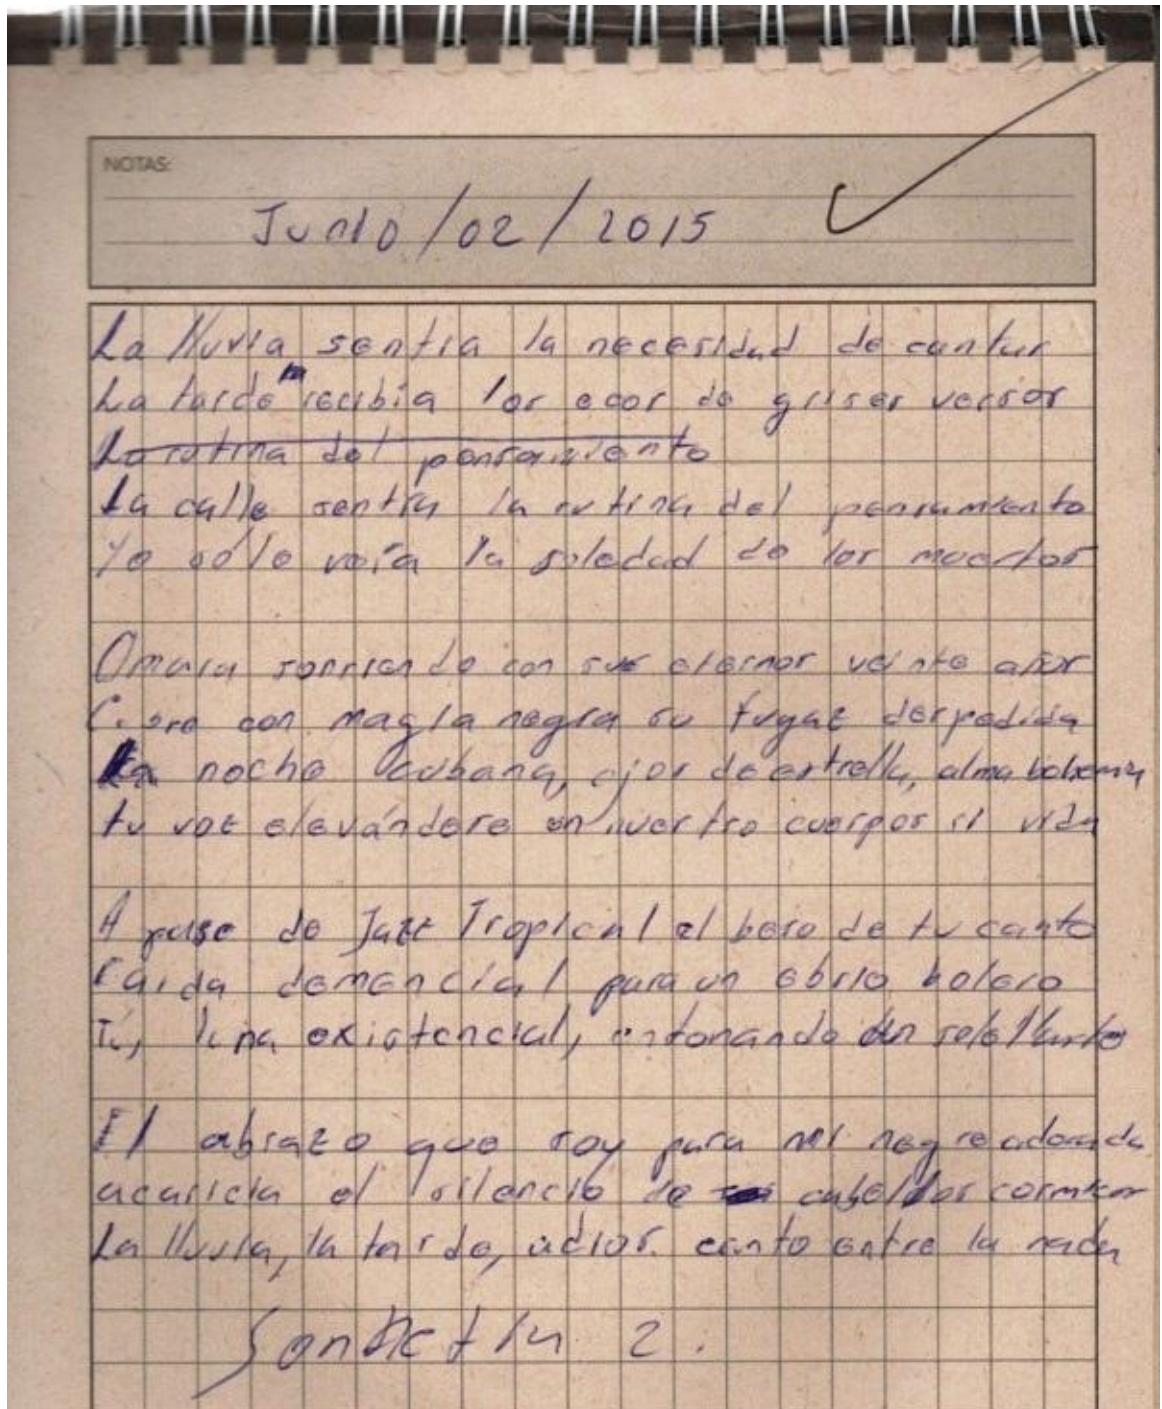 NOTAS:
Junio/02/2015
La lluvia sentía la necesidad de cantar
La tarde recibía los ecos de grises versos
La rutina del pensamiento
La calle sentía la rutina del pensamiento
Yo sólo veía la soledad de los muertos
Omara sonriendo con sus eternos veinte años
con magia negra su fugaz despedida
La noche cubana, ojos de estrella, alma bohemia
tu voz elevándose en nuestro cuerpos si vida
A pulso de Jazz Tropical el beso de tu canto
Caída demencial para un ebrio bolero
Tú, luna existencial, entonando un solo llanto
El abrazo que soy para mi negre adorada
acaricia el silencio de cabellos
La lluvia, la tarde, adios. canto entre la nada
2.